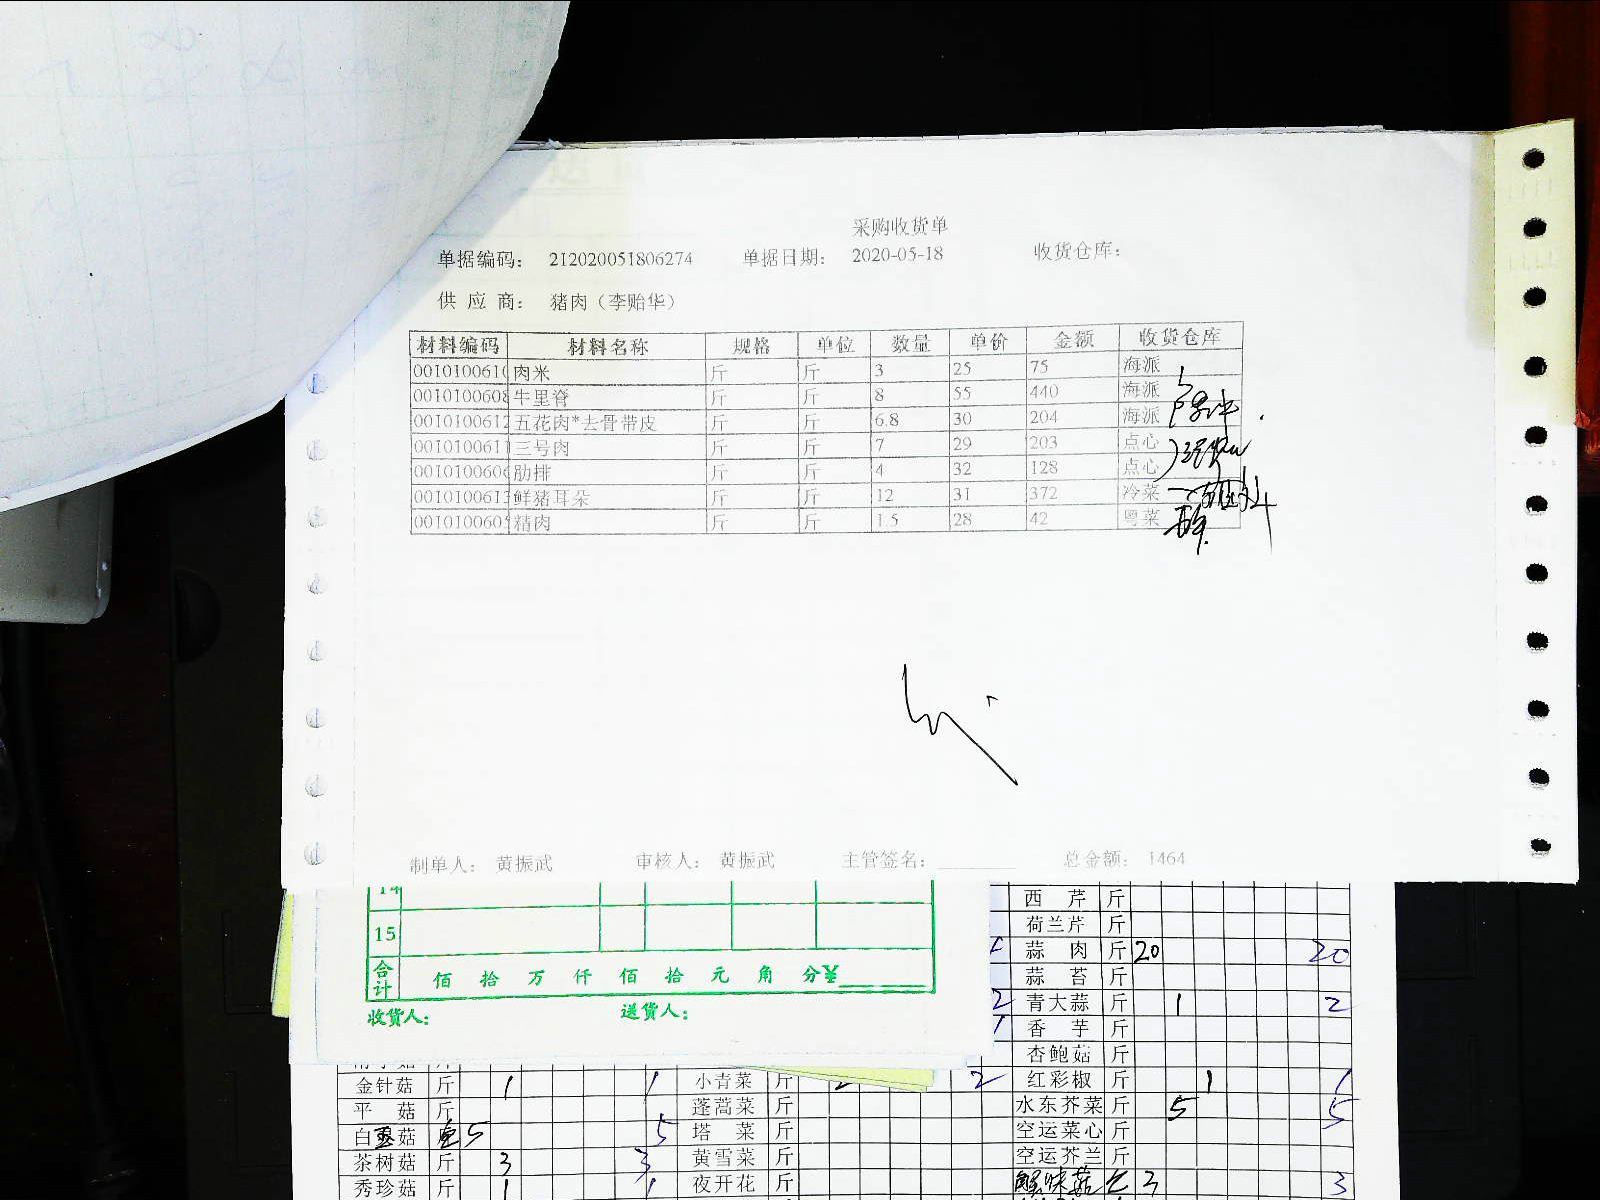 采购收货单
单据编码: 212020051806274 单据日期: 2020-05-18 收货仓库:
供 应 商: 猪肉(李贻华)
材料编码 材料名称 规格 单位 数量 单价 金额 收货仓库
0010100610 肉米 斤 斤 3 25 75 海派
0010100608 牛里脊 斤 斤 8 55 440 海派
0010100612 五花肉*去骨带皮 斤 斤 6.8 30 204 海派
0010100611 三号肉 斤 斤 7 29 203 点心
0010100606 肋排 斤 斤 4 32 128 点心
0010100613 鲜猪耳朵 斤 斤 12 31 372 冷菜
001010060 精肉 斤 斤 1.5 28 42 粤菜
制单人: 黄振武 审核人: 黄振武 主管签名: 总金额: 1464
14
15
合计 佰 拾 万 仟 佰 拾 元 角 分¥
收货人: 送货人:
西 芹 斤
荷兰芹 斤
蒜 肉 斤 20 20
蒜 苔 斤
2 青大蒜 斤 1 2
香 芋 斤
杏鲍菇 斤
金针菇 斤 1 1 小青菜 斤 2 2 红彩椒 斤 1 1
平 菇 斤 蓬蒿菜 斤 水东芥菜 斤 5 5
白 菇 5 5 塔 菜 斤 空运菜心 斤
茶树菇 斤 3 3 黄雪菜 斤 空运芥兰 斤
秀珍菇 斤 1 1 夜开花 斤 菇 3 3